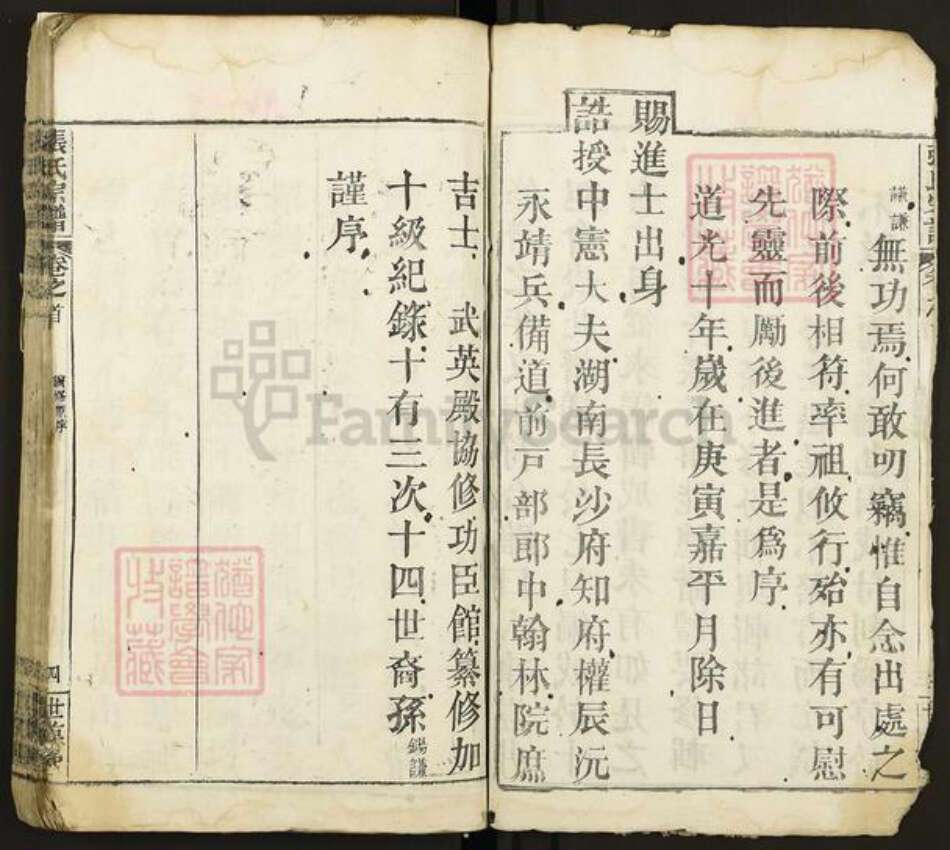 謙無功焉何敢叨竊惟自念出處之
際前後相符率祖攸行殆亦有可慰
先靈而勵後進者是爲序
道光十年歲在庚寅嘉平月除日
賜進士出身
誥授中憲大夫湖南長沙府知府權辰沅
永靖兵備道前戸部郎中翰林院庶
吉士 武英殿協修功臣館纂修加
十級紀錄十有三次十四世裔孫錫謙
謹序
張氏宗譜 卷之首
四
FamilySearch